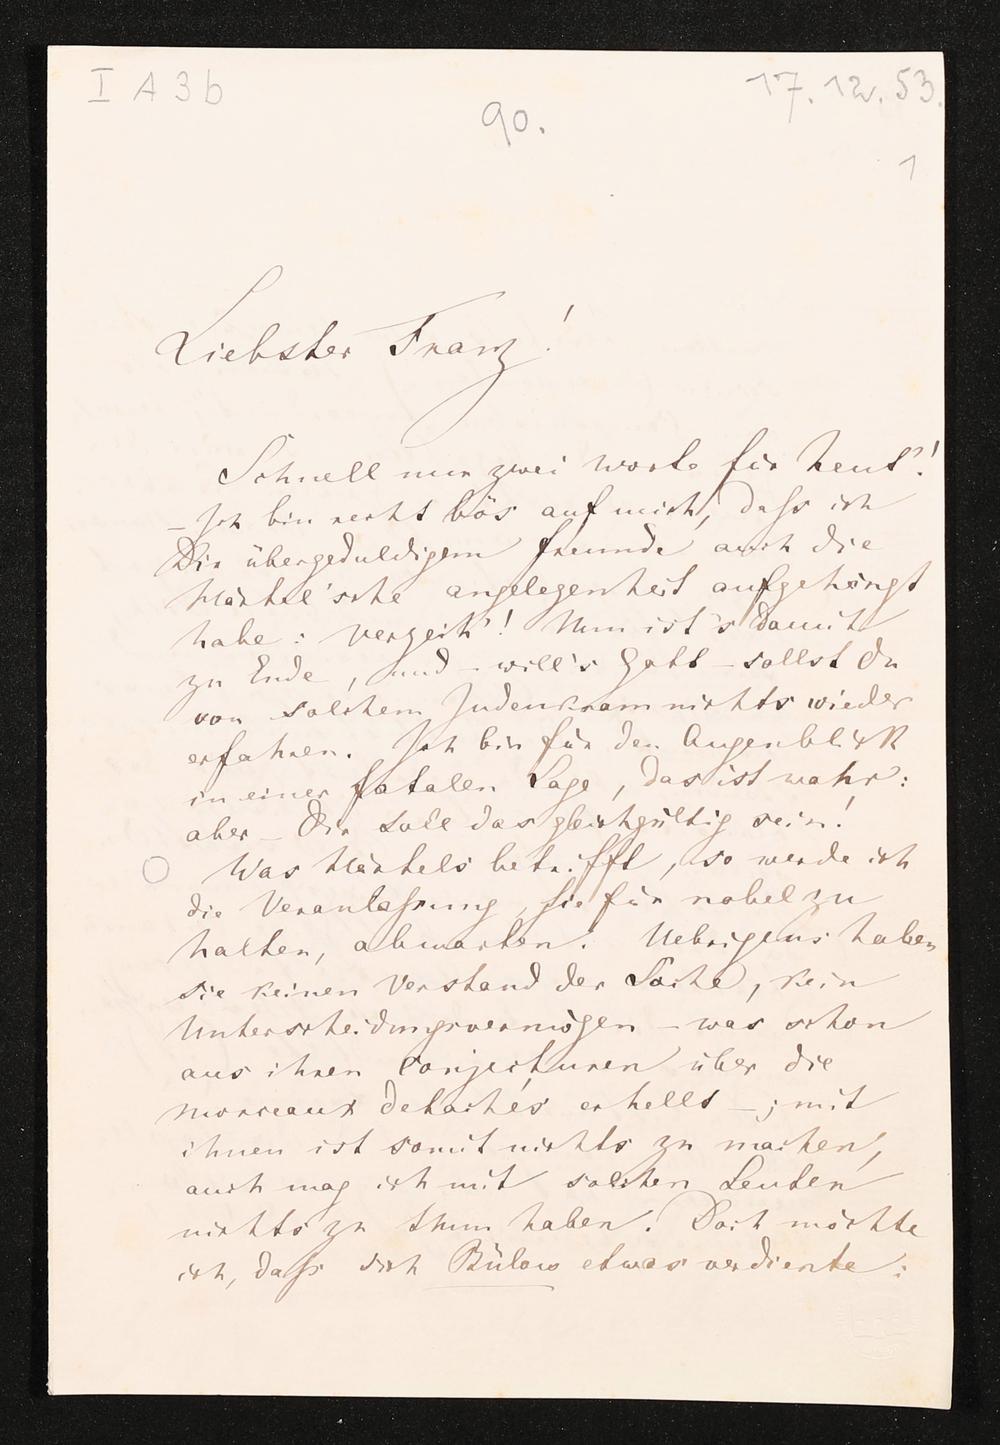 I A 3 b
17. 12. 53.
90.
1
Liebster Franz!
Schnell nur zwei worte für heut'!
– Ich bin recht bös auf mich, daſs ich
Dir übergeduldigem freunde auch die
Härtel'sche angelegenheit aufgehängt
habe: verzeih'! Nun ist's damit
zu Ende, und – will's Gott – sollst du
von solchem Judenkram nichts wieder
erfahren. Ich bin für den Augenblick
in einer fatalen Lage, das ist wahr:
aber – Dir soll das gleichgültig sein!
Was Härtels betrifft, so werde ich
die Veranlaſsung, sie für nobel zu
halten, abwarten. Uebrigens haben
sie keinen Verstand der Sache, kein
Unterscheidungsvermögen – was schon
aus ihren Conjecturen über die
morceaux detachés erhellt –; mit
ihnen ist somit nichts zu machen,
auch mag ich mit solchen Leuten
nichts zu thun haben. Doch möchte
ich, daſs sich Bülow etwas verdiente: